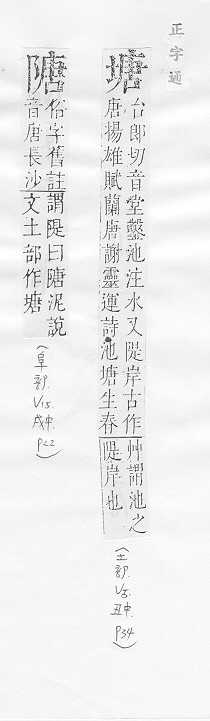 正字通
塘
台郎切音堂鑿池注水又隄岸古作
唐揚雄賦蘭唐謝靈運詩池塘生春
艸謂池之
隄岸也
(土部.
V5.
丑中.
P34)
隯
俗字舊註謂隄曰隯泥說
音唐長沙
文土部作塘
(阜部.
V15.
戌中.
P22)